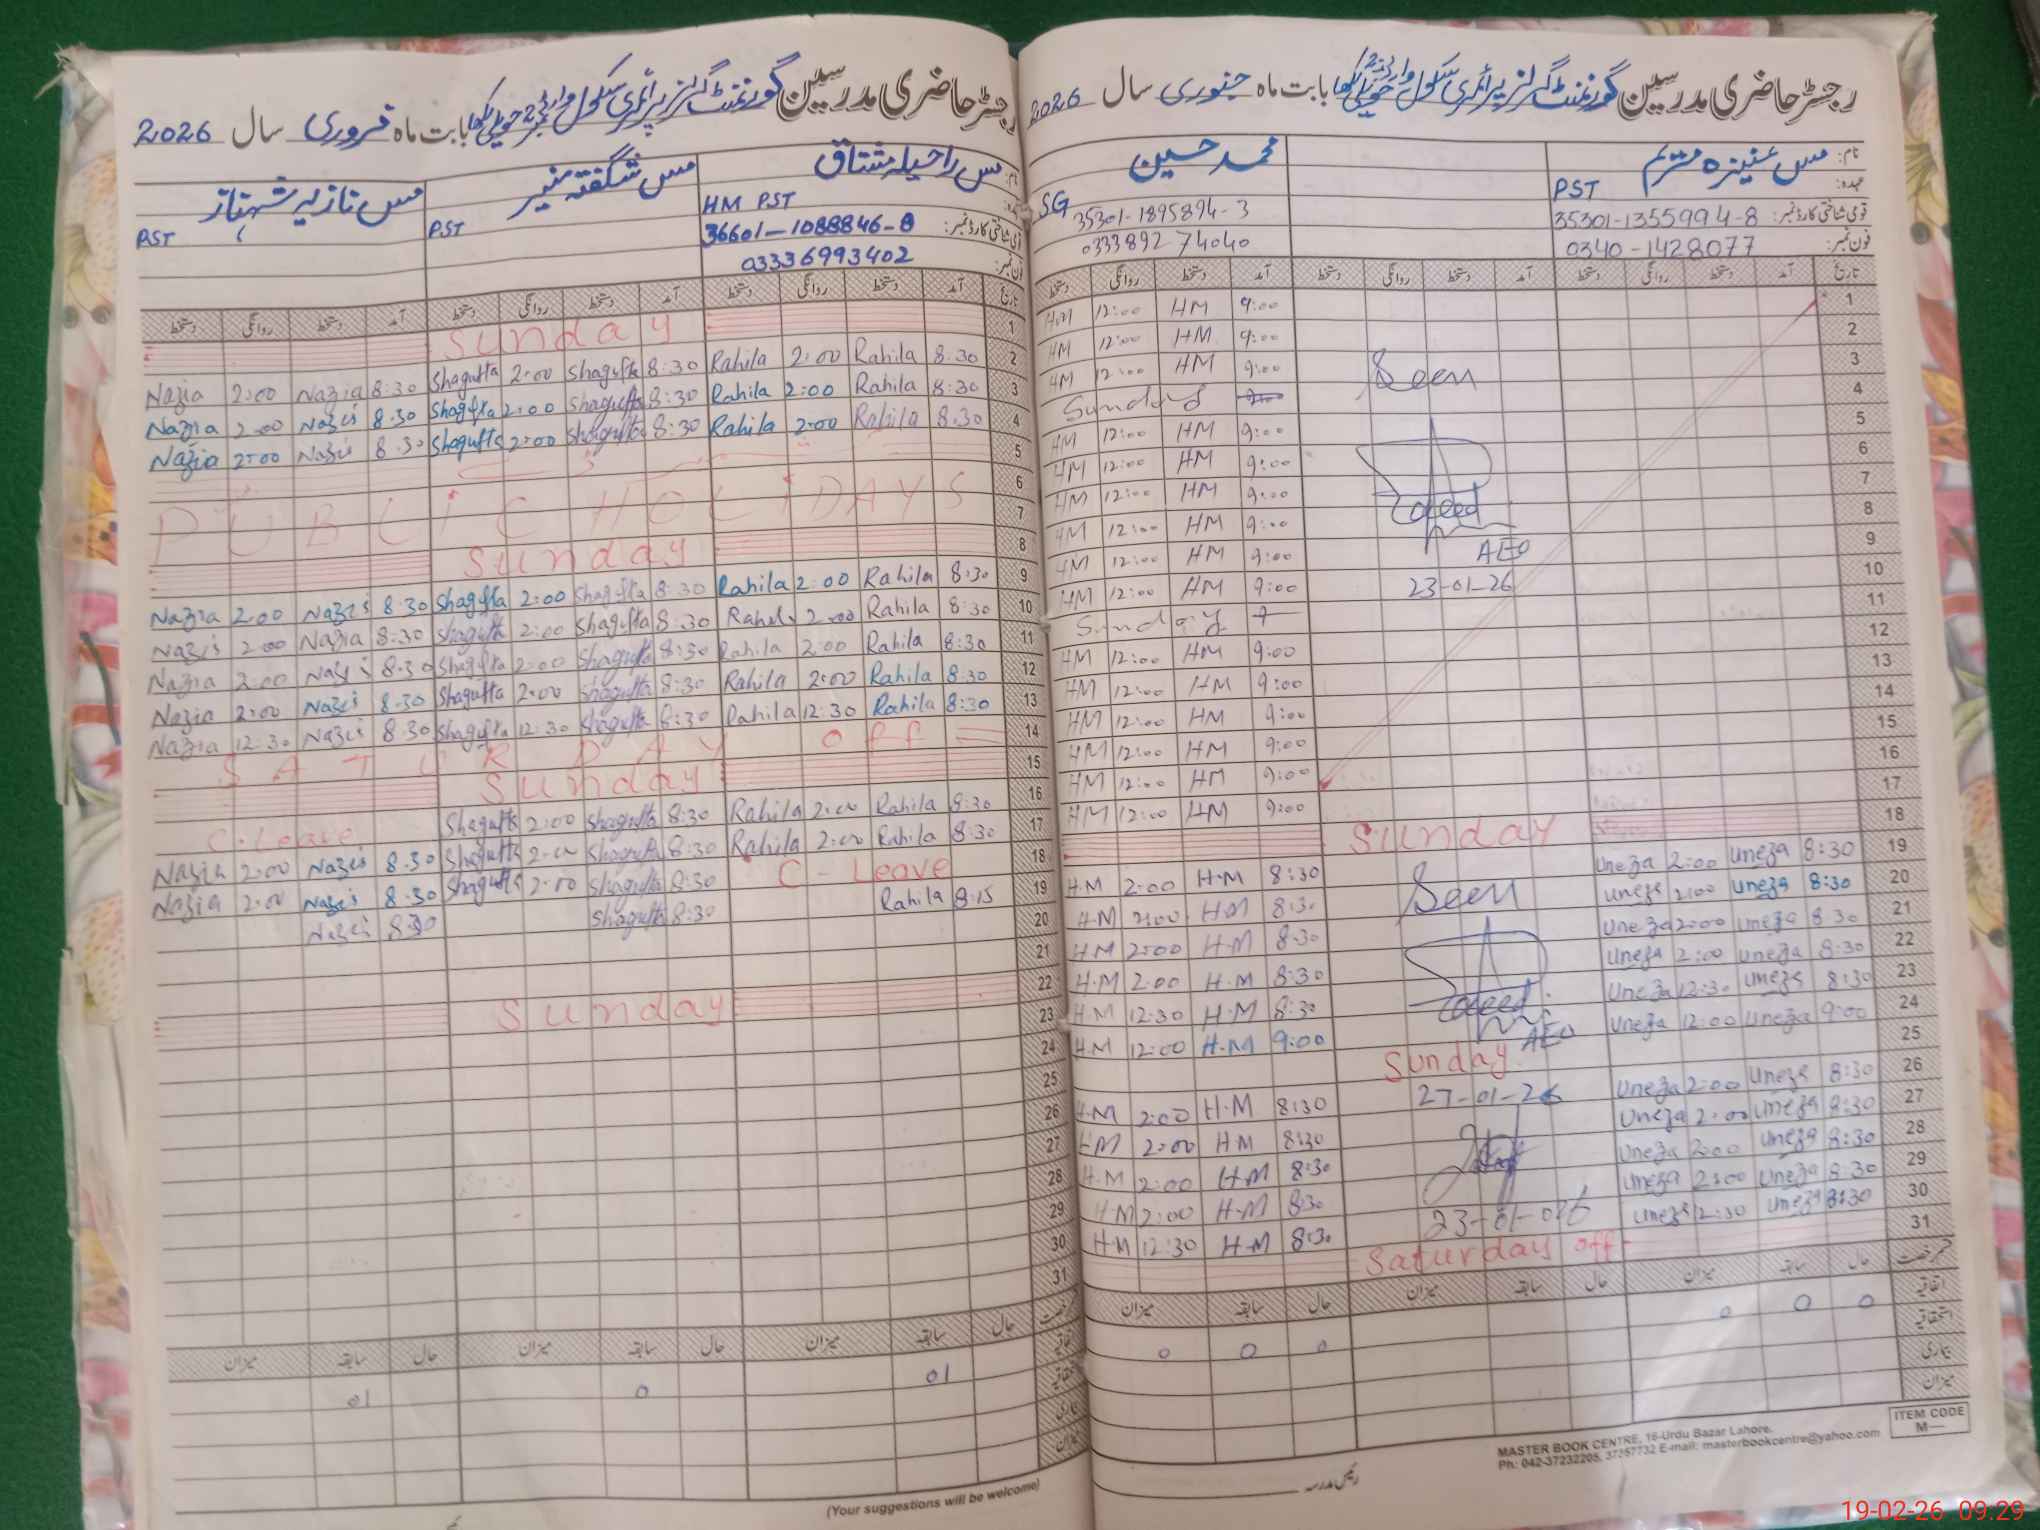 رجسٹر حاضری مدرسین گورنمنٹ گرلز پرائمری سکول وارڈ نمبر 2 حویلی لکھا بابت ماہ جنوری سال 2026
نام: مس عنیزہ مریم محمد حسین
عہدہ: PST SG
قومی شناختی کارڈ نمبر: 35301-1355994-8 35301-1895894-3
فون نمبر: 0340-1428077 033389274040
تاریخ آمد دستخط روانگی دستخط آمد دستخط روانگی دستخط آمد دستخط روانگی دستخط
HM 12:00 HM 9:00 1
HM 12:00 HM 9:00 2
HM 12:00 HM 9:00 Seen 3
Sunday 4
HM 12:00 HM 9:00 5
HM 12:00 HM 9:00 6
HM 12:00 HM 9:00 Saeed 7
HM 12:00 HM 9:00 8
HM 12:00 HM 9:00 AEO 9
HM 12:00 HM 9:00 23-01-26 10
Sunday 11
HM 12:00 HM 9:00 12
HM 12:00 HM 9:00 13
HM 12:00 HM 9:00 14
HM 12:00 HM 9:00 15
HM 12:00 HM 9:00 16
HM 12:00 HM 9:00 17
Sunday 18
H.M 2:00 H.M 8:30 Seen Uneza 2:00 Uneza 8:30 19
H.M 2:00 H.M 8:30 Uneza 2:00 Uneza 8:30 20
H.M 2:00 H.M 8:30 Uneza 2:00 Uneza 8:30 21
H.M 2:00 H.M 8:30 Uneza 2:00 Uneza 8:30 22
H.M 12:30 H.M 8:30 Saeed Uneza 12:30 Uneza 8:30 23
H.M 12:00 H.M 9:00 AEO Uneza 12:00 Uneza 9:00 24
Sunday 25
H.M 2:00 H.M 8:30 27-01-26 Uneza 2:00 Uneza 8:30 26
HM 2:00 HM 8:30 Uneza 2:00 Uneza 8:30 27
H.M 2:00 H.M 8:30 Uneza 2:00 Uneza 8:30 28
H.M 2:00 H.M 8:30 Uneza 2:00 Uneza 8:30 29
H.M 12:30 H.M 8:30 23-01-026 Uneza 12:30 Uneza 8:30 30
Saturday off 31
حال سابقہ میزان حال سابقہ میزان حال سابقہ میزان
اتفاقیہ 0 0 0 0 0 0
استحقاقیہ
بیماری
میزان
ITEM CODE
M—
MASTER BOOK CENTRE, 16-Urdu Bazar Lahore.
Ph: 042-37232205, 37357732 E-mail: masterbookcentre@yahoo.com
رئیس مدرسہ
رجسٹر حاضری مدرسین گورنمنٹ گرلز پرائمری سکول وارڈ نمبر 2 حویلی لکھا بابت ماہ فروری سال 2026
نام: مس راحیلہ مشتاق مس شگفتہ منیر مس نازیہ شہناز
HM PST PST PST
قومی شناختی کارڈ نمبر: 36601-1088846-8
فون نمبر: 03336993402
تاریخ آمد دستخط روانگی دستخط آمد دستخط روانگی دستخط آمد دستخط روانگی دستخط
Sunday 1
Nazia 2:00 Nazia 8:30 Shagufta 2:00 Shagufta 8:30 Rahila 2:00 Rahila 8:30 2
Nazia 2:00 Nazia 8:30 Shagufta 2:00 Shagufta 8:30 Rahila 2:00 Rahila 8:30 3
Nazia 2:00 Nazia 8:30 Shagufta 2:00 Shagufta 8:30 Rahila 2:00 Rahila 8:30 4
5
6
PUBLIC HOLIDAYS 7
Sunday 8
Nazia 2:00 Nazia 8:30 Shagufta 2:00 Shagufta 8:30 Rahila 2:00 Rahila 8:30 9
Nazia 2:00 Nazia 8:30 Shagufta 2:00 Shagufta 8:30 Rahila 2:00 Rahila 8:30 10
Nazia 2:00 Nazia 8:30 Shagufta 2:00 Shagufta 8:30 Rahila 2:00 Rahila 8:30 11
Nazia 2:00 Nazia 8:30 Shagufta 2:00 Shagufta 8:30 Rahila 2:00 Rahila 8:30 12
Nazia 12:30 Nazia 8:30 Shagufta 12:30 Shagufta 8:30 Rahila 12:30 Rahila 8:30 13
SATURDAY off 14
Sunday 15
C-Leave Shagufta 2:00 Shagufta 8:30 Rahila 2:00 Rahila 8:30 16
Nazia 2:00 Nazia 8:30 Shagufta 2:00 Shagufta 8:30 Rahila 2:00 Rahila 8:30 17
Nazia 2:00 Nazia 8:30 Shagufta 2:00 Shagufta 8:30 C-Leave 18
Nazia 8:30 Shagufta 8:30 Rahila 8:15 19
20
21
Sunday 22
23
24
25
26
27
28
29
30
31
حال سابقہ میزان حال سابقہ میزان حال سابقہ میزان
01 0 01
(Your suggestions will be welcome)
19-02-26 09:29